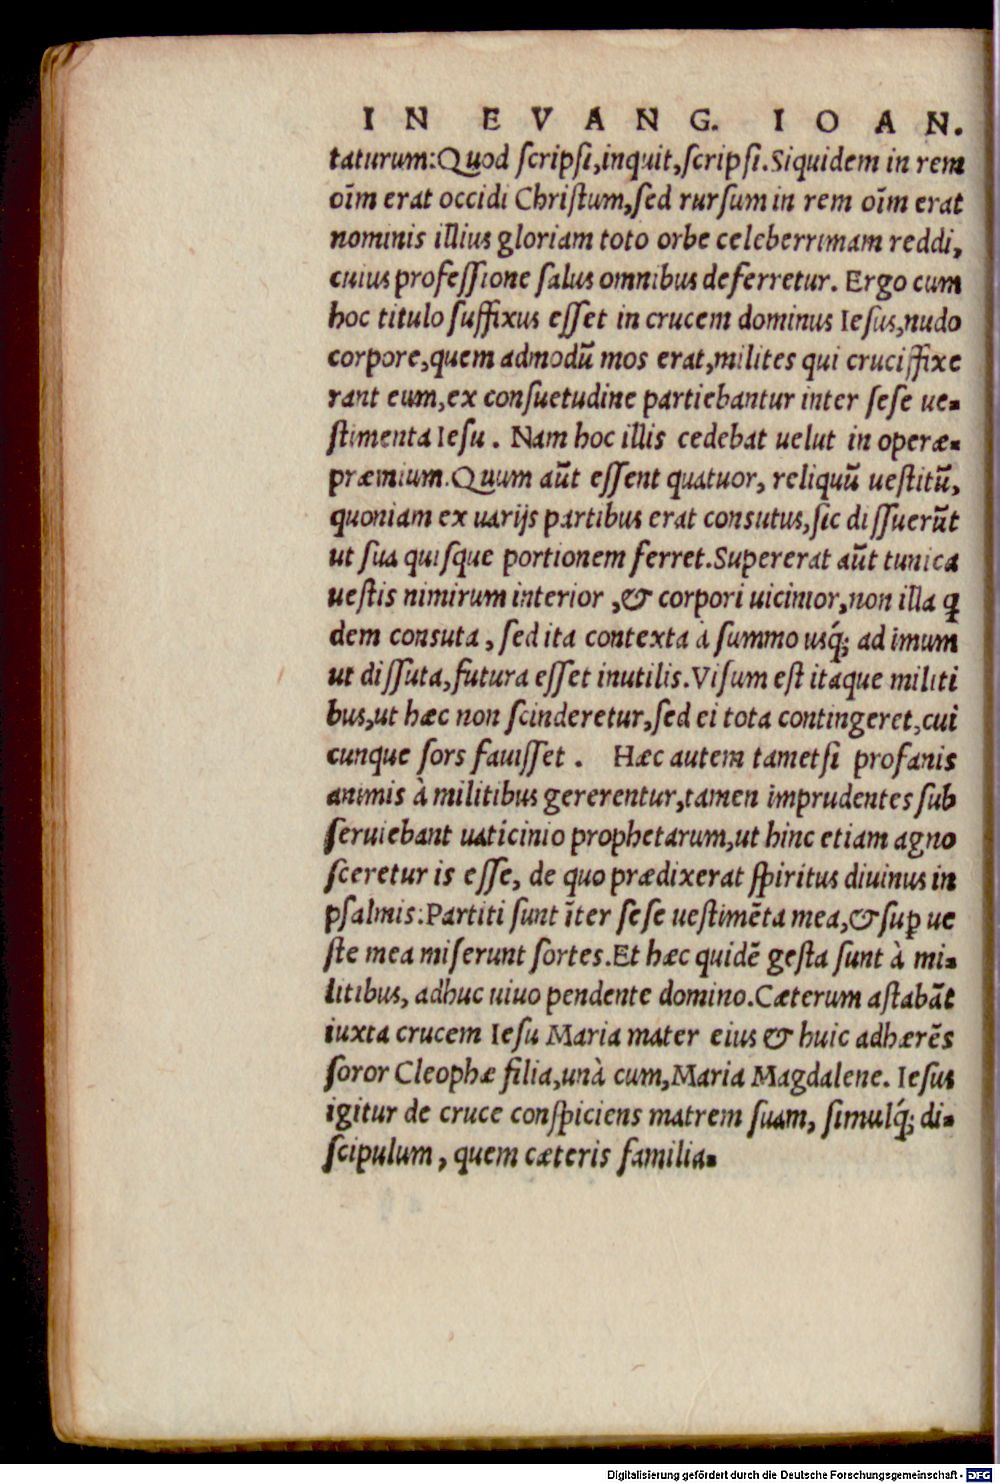 IN EVANG. IOAN.
taturum:Quod ſcripſi,inquit,ſcripſi.Siquidem in rem
oīm erat occidi Chriſtum,ſed rurſum in rem oīm erat
nominis illius gloriam toto orbe celeberrimam reddi,
cuius profeſſione ſalus omnibus deferretur. Ergo cum
hoc titulo ſuffixus eſſet in crucem dominus Ieſus,nudo
corpore,quem admodū mos erat,milites qui cruciffixe
rant eum,ex conſuetudine partiebantur inter ſeſe ue-
ſtimenta Ieſu. Nam hoc illis cedebat uelut in operæ-
præmium.Quum aūt eſſent quatuor, reliquū ueſtitū,
quoniam ex uarijs partibus erat conſutus,ſic diſſuerūt
ut ſua quiſque portionem ferret.Supererat aūt tunica
ueſtis nimirum interior ,& corpori uicinior,non illa ꝗ
dem conſuta, ſed ita contexta à ſummo uſq́; ad imum
ut diſſuta,futura eſſet inutilis.Viſum eſt itaque militi
bus,ut hæc non ſcinderetur,ſed ei tota contingeret,cui
cunque ſors fauiſſet. Hæc autem tametſi profanis
animis à militibus gererentur,tamen imprudentes ſub
ſeruiebant uaticinio prophetarum,ut hinc etiam agno
ſceretur is eſſe, de quo prædixerat ſpiritus diuinus in
pſalmis:Partiti ſunt īter ſeſe ueſtimēta mea,& ſuꝑ ue
ſte mea miſerunt ſortes.Et hæc quidē geſta ſunt à mi-
litibus, adhuc uiuo pendente domino.Cæterum aſtabāt
iuxta crucem Ieſu Maria mater eius & huic adhærēs
ſoror Cleophæ filia,unà cum,Maria Magdalene. Ieſus
igitur de cruce conſpiciens matrem ſuam, ſimulq́; di-
ſcipulum, quem cæteris familia-
Digitalisierung gefördert durch die Deutsche Forschungsgemeinschaft - DFG